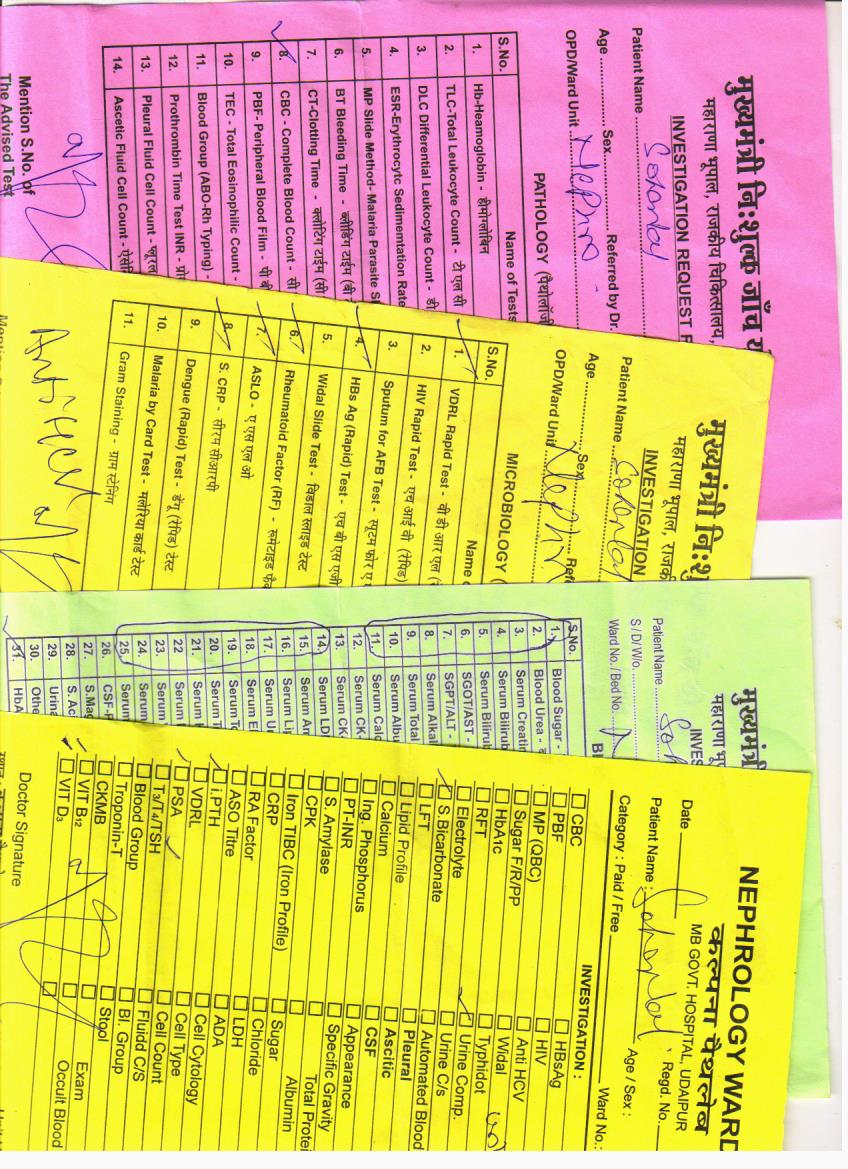 मुख्यमंत्री नि:शुल्क जाँच
महाराणा भूपाल, राजकीय चिकित्सालय,
INVESTIGATION REQUEST F
Patient Name
Sohanlal
Age Sex Referred by Dr.
OPD/Ward Unit Nephro
PATHOLOGY (पैथोलॉजी
S.No. Name of Tests
1. Hb-Heamoglobin - हीमोग्लोबिन
2. TLC-Total Leukocyte Count - टी एल सी
3. DLC Differential Leukocyte Count - डी
4. ESR-Erythrocytc Sedimentation Rate
5. MP Slide Method- Malaria Parasite S
6. BT Bleeding Time - ब्लीडिंग टाईम (बी
7. CT-Clotting Time - क्लोटिंग टाईम (सी
8. CBC - Complete Blood Count - सी
9. PBF- Peripheral Blood Film - पी बी
10. TEC - Total Eosinophilic Count -
11. Blood Group (ABO-Rh Typing) -
12. Prothrombin Time Test INR - प्रो
13. Pleural Fluid Cell Count - प्लूरल
14. Ascetic Fluid Cell Count - ऐसी
Mention S.No. of
The Advised Test
मुख्यमंत्री नि:शु
महाराणा भूपाल, राजकी
INVESTIGATION
Patient Name Sohanlal
Age Sex Refe
OPD/Ward Unit Nephro
MICROBIOLOGY (
S.No. Name o
1. VDRL Rapid Test - वी डी आर एल (
2. HIV Rapid Test - एच आई वी (रेपिड)
3. Sputum for AFB Test - स्पूटम फोर ए
4. HBs Ag (Rapid) Test - एच बी एस एजी
5. Widal Slide Test - विडाल स्लाइड टेस्ट
6. Rheumatoid Factor (RF) - रूमेटाइड फै
7. ASLO - ए एस एल ओ
8. S. CRP - सीरम सीआरपी
9. Dengue (Rapid) Test - डेंगू (रेपिड) टेस्ट
10. Malaria by Card Test - मलेरिया कार्ड टेस्ट
11. Gram Staining - ग्राम स्टेनिंग
Anti HCV
मुख्यमंत्री
महाराणा
INVES
Patient Name
S / D / W/o.
Ward No. / Bed No.
BI
S.No.
1. Blood Sugar -
2. Blood Urea -
3. Serum Creatin
4. Serum Bilirub
5. Serum Bilirub
6. SGOT/AST -
7. SGPT/ALT -
8. Serum Alkal
9. Serum Total
10. Serum Albu
11. Serum Calc
12. Serum CK-
13. Serum CK-
14. Serum LD
15. Serum Am
16. Serum Lip
17. Serum U
18. Serum E
19. Serum To
20. Serum T
21. Serum
22. Serum
23. Serum
24. Serum
25. Serum
26. CSF-P
27. S.Mag
28. S. Ac
29. Urina
30. Othe
31. HbA
NEPHROLOGY WARD
कल्पना पैथलेब
MB GOVT. HOSPITAL, UDAIPUR
Date Regd. No.
Patient Name : Sohanlal Age / Sex :
Category : Paid / Free Ward No.:
INVESTIGATION :
CBC HBsAg
PBF HIV
MP (QBC) Anti HCV
Sugar F/R/PP Widal
HbA1c Typhidot
RFT Urine Comp.
Electrolyte Urine C/s
S Bicarbonate Automated Blood
LFT Pleural
Lipid Profile Ascitic
Calcium CSF
Ing. Phosphorus Appearance
PT-INR Specific Gravity
S. Amylase Total Protei
CPK Albumin
Iron TIBC (Iron Profile) Sugar
CRP Chloride
RA Factor LDH
ASO Titre ADA
i.PTH Cell Cytology
VDRL Cell Type
PSA Cell Count
T3/T4/TSH Fluidd C/S
Blood Group Bl. Group
Troponin-T Stool
CKMB Exam
VIT B12 Occult Blood
VIT D3
Doctor Signature